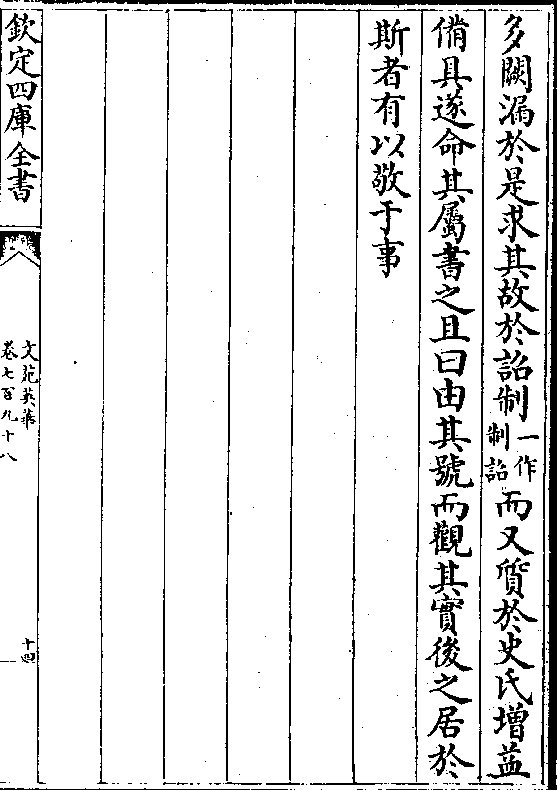 多闕漏於是求其故於詔制一作制詔而又質於史氏增益
備具遂命其屬書之且曰由其號而觀其實後之居於
斯者有以敬于事
欽定四庫全書
文苑英華
卷七百九十八
十四